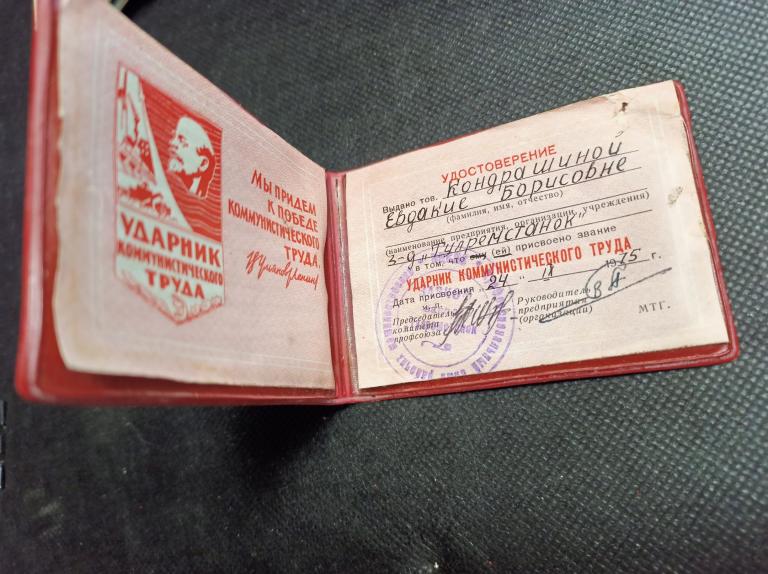 УДАРНИК
КОММУНИСТИЧЕСКОГО
ТРУДА
МЫ ПРИДЕМ
К ПОБЕДЕ
КОММУНИСТИЧЕСКОГО
ТРУДА.
УДОСТОВЕРЕНИЕ
Выдано тов. Кондрашиной
Евдакие Борисовне
(фамилия, имя, отчество)
(наименование предприятия, организации, учреждения)
з-д „Тулремстанок"
в том, что ему (ей) присвоено звание
УДАРНИК КОММУНИСТИЧЕСКОГО ТРУДА
Дата присвоения „24" IX 1975 г.
м. п.
Председатель
комитета
профсоюза
Руководитель
предприятия
(организации)
МТГ.